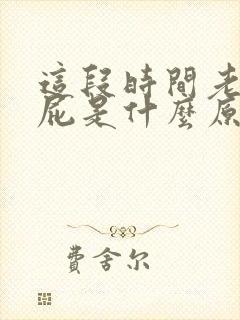 這段時間老
屁是什麼原
費舍尔